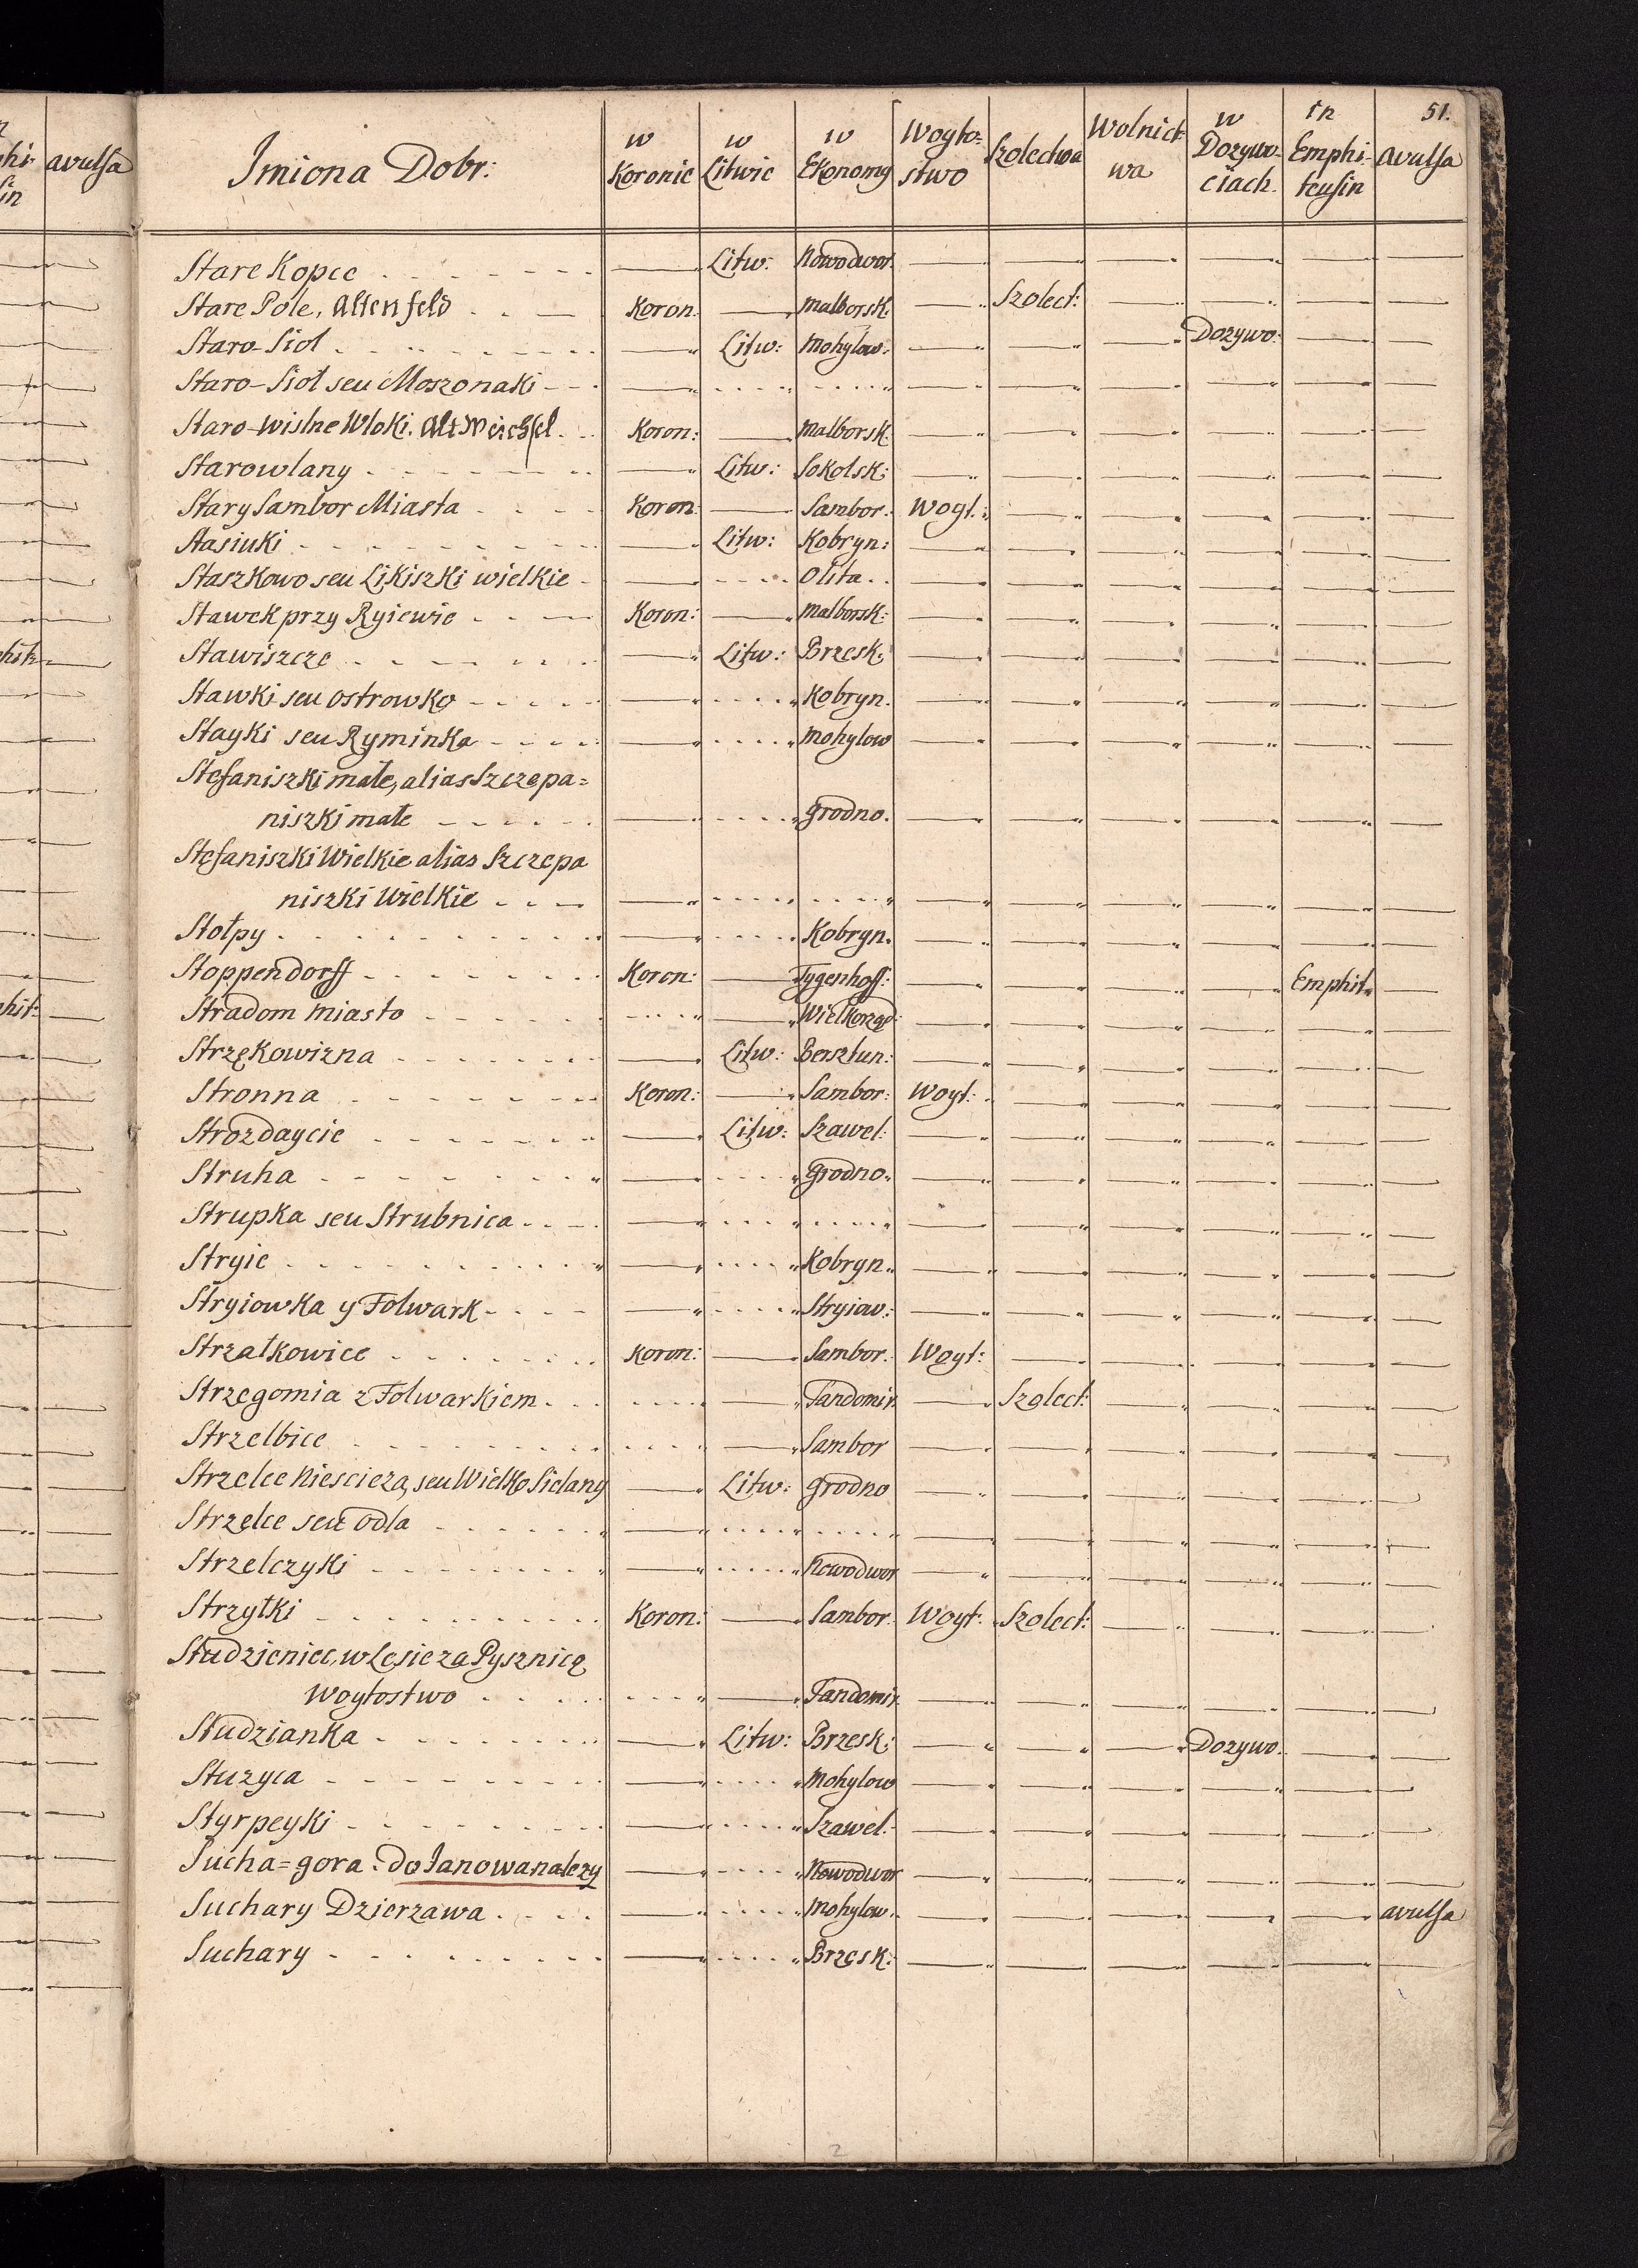 51.
Imiona Dobr: w Koronie w Litwie w Ekonomy Woyto=stwo Szolectwa Wolnict=wa w Dozywo=ciach. in Emphi=teusin avulsa
Stare Kopce Litw: Nowodwor.
Stare Pole, Altenfeld Koron: Malborsk: Szolect:
Staro-Siol Litw: Mohylow: Dozywo:
Staro-Siol seu Moszonaki
Staro-wislne Wloki. Alt Weichsel Koron: Malborsk:
Starowlany Litw: Sokolsk:
Stary Sambor Miasta Koron: Sambor: Woyt:
Stasiuki Litw: Kobryn:
Staszkowo seu Likiszki wielkie Olita
Stawek przy Ryiewie Koron: Malborsk:
Stawiszcze Litw: Brzesk:
Stawki seu Ostrowko Kobryn.
Stayki seu Ryminka Mohylow
Stefaniszki małe, alias Szczepa=
niszki małe Grodno.
Stefaniszki Wielkie alias Szczepa
niszki Wielkie
Stołpy Kobryn.
Stoppendorff Koron: Tygenhoff: Emphit
Stradom miasto Wielkorząd:
Strzękowizna Litw: Bersztun:
Stronna Koron: Sambor: Woyt:
Strozdaycie Litw: Szawel:
Struha Grodno.
Strupka seu Strubnica
Stryie Kobryn
Stryiowka y Folwark Stryiow:
Strzałkowice Koron: Sambor: Woyt:
Strzegomia z Folwarkiem Sandomir. Szolect:
Strzelbice Sambor
Strzelce Niescieza, seu Wielko Sielany Litw: Grodno
Strzelce seu Odla
Strzelczyki Nowodwor
Strzyłki Koron: Sambor Woyt: Szolect:
Studzieniec, w Lesie za Pysznicą
Woytostwo Sandomir.
Studzianka Litw: Brzesk: Dozywo.
Stuzyca Mohylow
Styrpeyki Szawel:
Sucha=gora: do Janowa nalezy Nowodwor
Suchary Dzierzawa Mohylow. avulsa
Suchary Brzesk: